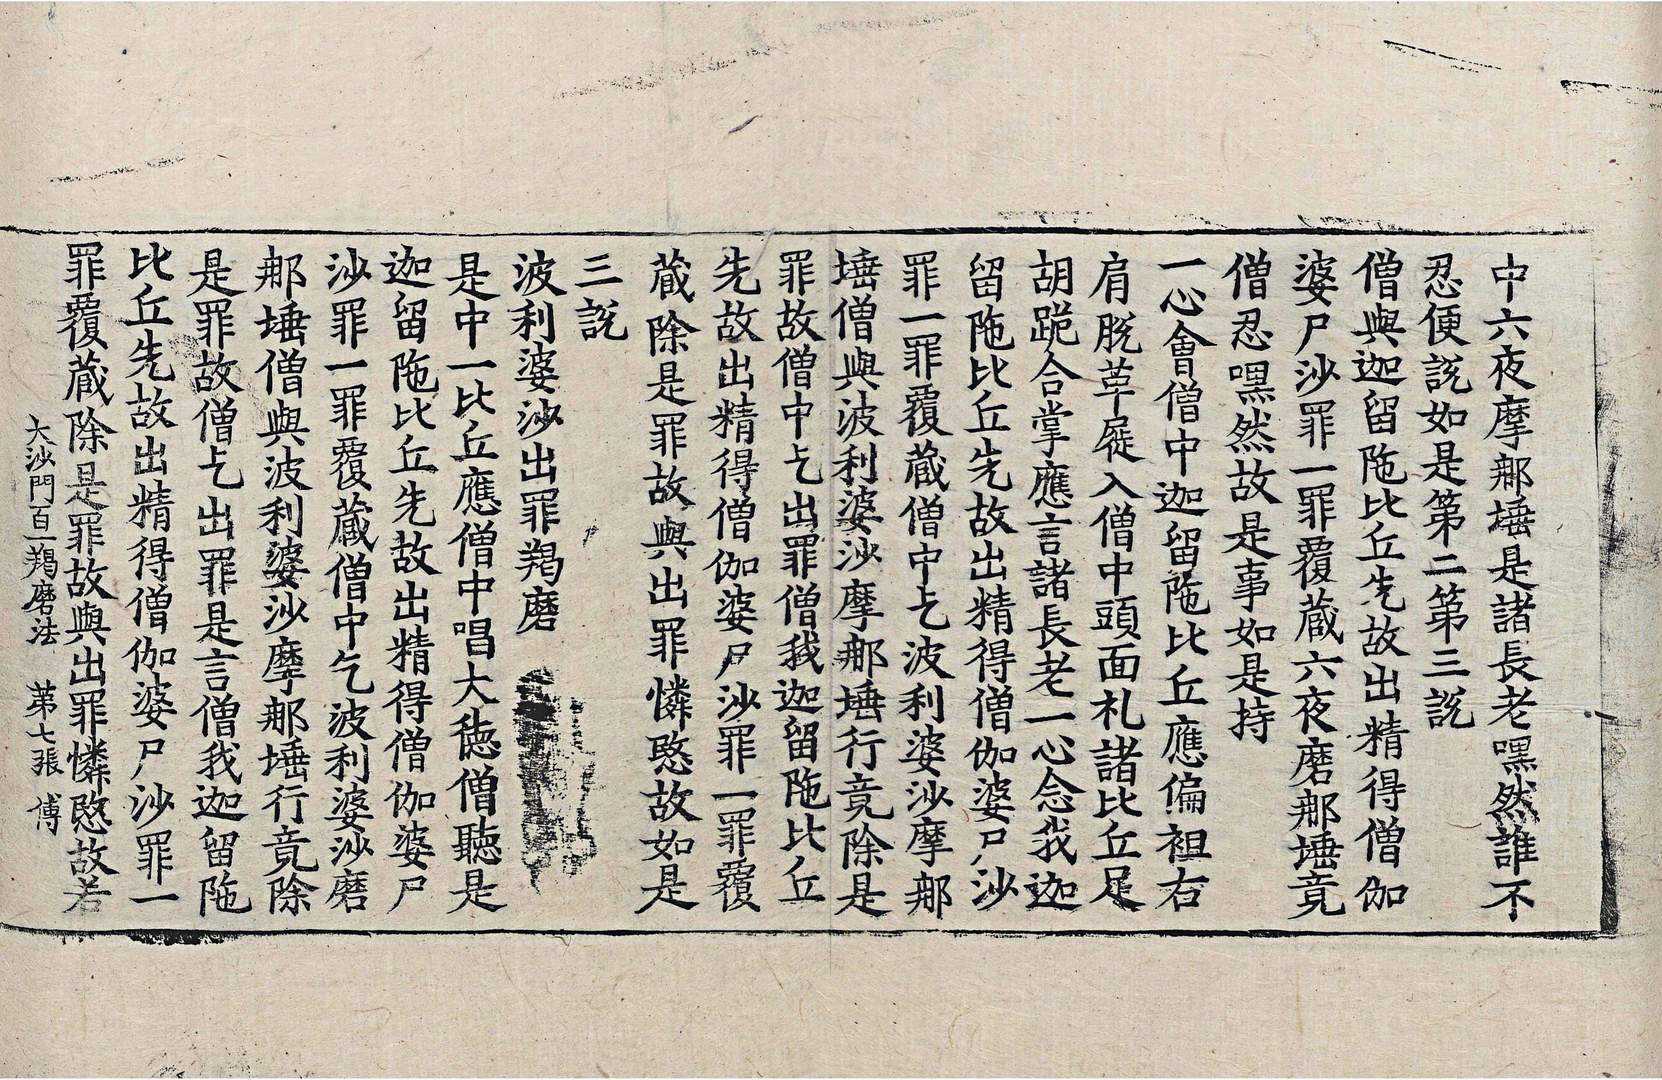 中六夜摩那埵是諸長老嘿然誰不
忍便説如是第二第三説
僧與迦留陁比丘先故出精得僧伽
婆尸沙罪一罪覆藏六夜磨那埵竟
僧忍嘿然故是事如是持
一心會僧中迦留陁比丘應偏袒右
肩脫草屣入僧中頭面礼諸比丘足
胡跪合掌應言諸長老一心念我迦
留陁比丘先故出精得僧伽婆尸沙
罪一罪覆藏僧中乞波利婆沙摩那
埵僧與波利婆沙摩那埵行竟除是
罪故僧中乞出罪僧我迦留陁比丘
先故出精得僧伽婆尸沙罪一罪覆
藏除是罪故與出罪憐愍故如是
三説
波利婆沙出罪羯磨
是中一比丘應僧中唱大德僧聽是
迦留陁比丘先故出精得僧伽婆尸
沙罪一罪覆藏僧中乞波利婆沙磨
那埵僧與波利婆沙摩那埵行竟除
是罪故僧乞出罪是言僧我迦留陁
比丘先故出精得僧伽婆尸沙罪一
罪覆藏除是罪故與出罪憐愍故若
大沙門百一羯磨法 第七張 傅